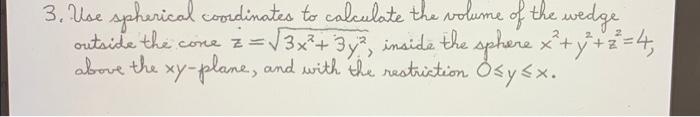 3. Use spherical coordinates to calculate the volume of the wedge
outside the cone z = √3x²+3y², inside the sphere x²+y²+z²=4,
above the xy-plane, and with the restriction 0≤y≤x.